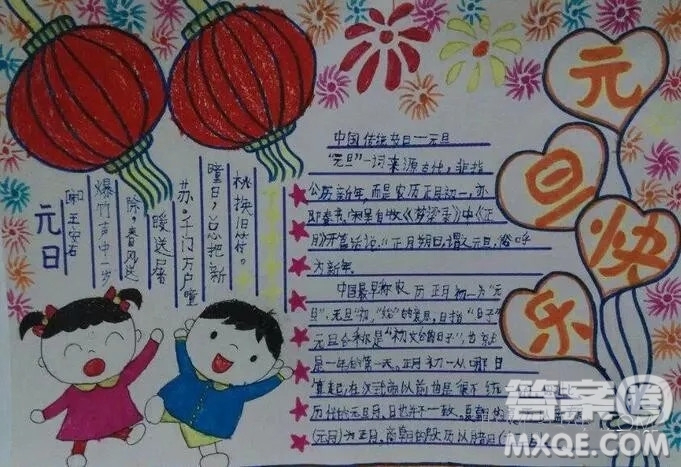 元日
王安石
爆竹声中一岁
除,春风送
暖送屠
苏.千门万户瞳
曈日,总把新
桃换旧符。
中国传统节日—元旦
"元旦"一词来源古代,非指
公历新年,而是农历正月初一,
即
开篇
"正月朔日,谓之元旦,俗呼
为新年。
中国最早称农历正月初一为"元
旦",元是"初"
旦指"日子"
元旦合称是"初始的日子",
是一年的第一天。正月初一从哪日
算起,在汉武帝以前也是很不统
历代的元旦月、日也并不一致。夏朝的
(元月)为正月,商朝的殷历以腊月(
元
旦
快
乐
答案圈
MXQE.COM